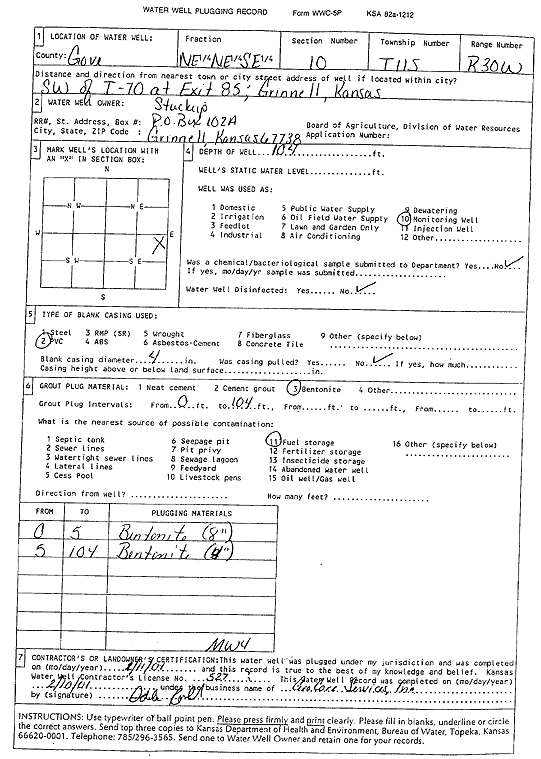 WATER WELL PLUGGING RECORD Form WWC-5P KSA 82a-1212
1 LOCATION OF WATER WELL: Fraction Section Number Township Number Range Number
County: Gove NE 1/4 NE 1/4 SE 1/4 10 T11S R30W
Distance and direction from nearest town or city street address of well if located within city?
SW of I-70 at Exit 85; Grinnell, Kansas
2 WATER WELL OWNER: Stuckys
RR#, St. Address, Box #: P.O. Box 102A Board of Agriculture, Division of Water Resources
City, State, ZIP Code : Grinnell Kansas 67738 Application Number:
3 MARK WELL'S LOCATION WITH AN "X" IN SECTION BOX:
N
N W N E
W E
X
S W S E
S
4 DEPTH OF WELL...104...ft.
WELL'S STATIC WATER LEVEL..........ft.
WELL WAS USED AS:
1 Domestic 5 Public Water Supply 9 Dewatering
2 Irrigation 6 Oil Field Water Supply 10 Monitoring Well
3 Feedlot 7 Lawn and Garden Only 11 Injection Well
4 Industrial 8 Air Conditioning 12 Other..........
Was a chemical/bacteriological sample submitted to Department? Yes....No ✓
If yes, mo/day/yr sample was submitted..........
Water Well Disinfected: Yes..... No ✓
5 TYPE OF BLANK CASING USED:
1 Steel 3 RMP (SR) 5 Wrought 7 Fiberglass 9 Other (specify below)
2 PVC 4 ABS 6 Asbestos-Cement 8 Concrete Tile
Blank casing diameter...4...in. Was casing pulled? Yes..... No ✓ If yes, how much..........
Casing height above or below land surface..........in.
6 GROUT PLUG MATERIAL: 1 Neat cement 2 Cement grout 3 Bentonite 4 Other..........
Grout Plug Intervals: From 0 ft. to 104 ft., From......ft. to ......ft., From...... to ......ft.
What is the nearest source of possible contamination:
1 Septic tank 6 Seepage pit 11 Fuel storage 16 Other (specify below)
2 Sewer lines 7 Pit privy 12 Fertilizer storage
3 Watertight sewer lines 8 Sewage lagoon 13 Insecticide storage
4 Lateral lines 9 Feedyard 14 Abandoned water well
5 Cess Pool 10 Livestock pens 15 Oil well/Gas well
Direction from well? .......... How many feet? ..........
FROM TO PLUGGING MATERIALS
0 5 Bentonite (8")
5 104 Bentonite (4")
MW4
7 CONTRACTOR'S OR LANDOWNER'S CERTIFICATION: This water well was plugged under my jurisdiction and was completed
on (mo/day/year)..........and this record is true to the best of my knowledge and belief. Kansas
Water Well Contractor's License No. ...527... This Water Well Record was completed on (mo/day/year)
under the business name of Services, Inc.
by (signature)
INSTRUCTIONS: Use typewriter or ball point pen. Please press firmly and print clearly. Please fill in blanks, underline or circle
the correct answers. Send top three copies to Kansas Department of Health and Environment, Bureau of Water, Topeka, Kansas
66620-0001. Telephone: 785/296-3565. Send one to Water Well Owner and retain one for your records.